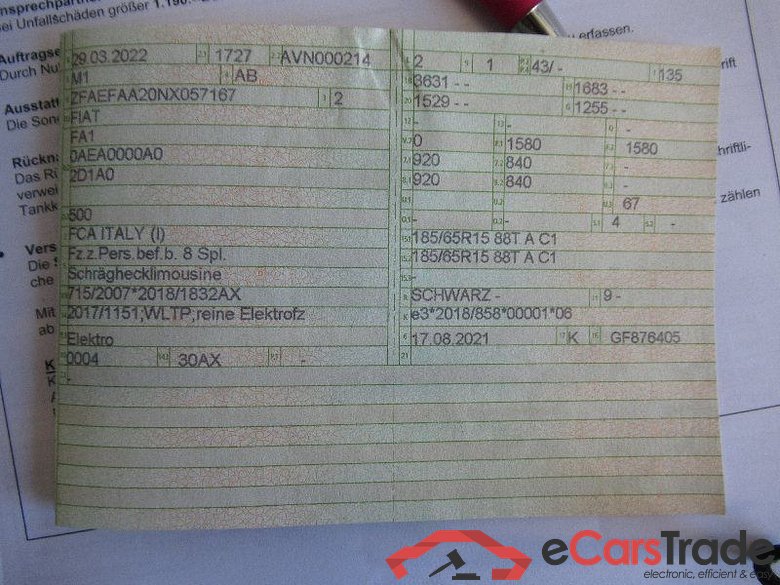 nsprechpartner
ei Unfallschäden größer 1.190.-
erfassen.
Auftragse
Durch Nu
rift
Ausstat
Die Son
Rückna
Das Rü
verwei
Tankk
hriftli-
zählen
Vers
Die S
che
Mit
ab
K
29.03.2022 2.1 1727 2.2 AVN000214
M1 4 AB
ZFAEFAA20NX057167 3 2
FIAT
FA1
0AEA0000A0
2D1A0
500
FCA ITALY (I)
Fz.z.Pers.bef.b. 8 Spl.
Schräghecklimousine
715/2007*2018/1832AX
2017/1151;WLTP;reine Elektrofz
Elektro
0004 14.1 30AX -
-
2 9 1 43/- 135
3631 - - 1683 - -
1529 - - 1255 - -
- - -
0 1580 1580
920 840 -
920 840 -
67
- - 4 -
185/65R15 88T A C1
185/65R15 88T A C1
-
SCHWARZ - 9 -
e3*2018/858*00001*06
17.08.2021 K GF876405
21
eCarsTrade
electronic, efficient & eas